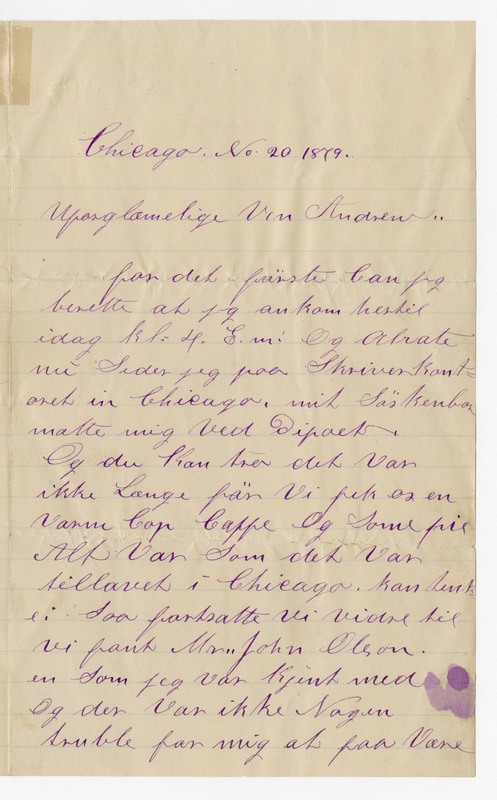 Chicago. No. 20 1879.
Uporglæmelige Ven Andrew„
for det förste Can jeg
berette at jeg ankom hertil
idag kl: 4. E. m: Og Alrate
nu Sider jeg paa Skriverkont=
oret in Chicago. mit Söskenbar
mätte mig Ved Dipoet.
Og du Kan tro det Var
ikke Længe för Vi fek os en
Varm Cop Caffe Og Some pie
Alt Var Som det Var
tillavet i Chicago. Kan tenk=
e: Saa fortsatte Vi vidre til
vi fant Mr„ John Olson.
en Som jeg var kjent med
Og der Var ikke Nogen
truble for mig at faa Være